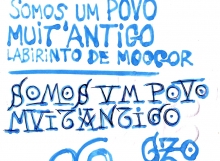 SOMOS UM POVO
MUIT'ANTIGO
LABIRINTO DE MOOGOR
SOMOS UM POVO
MUIT'ANTIGO